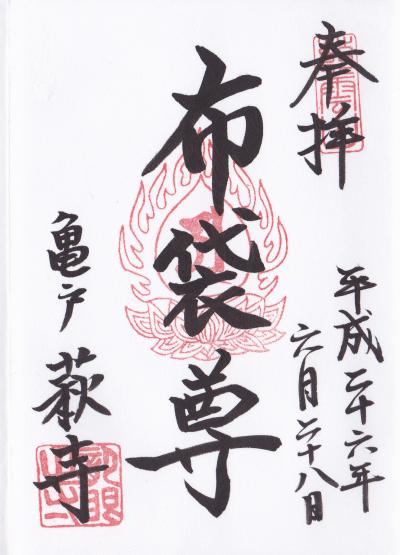 奉拝
平成二十六年
六月二十八日
布袋尊
亀戸
萩寺